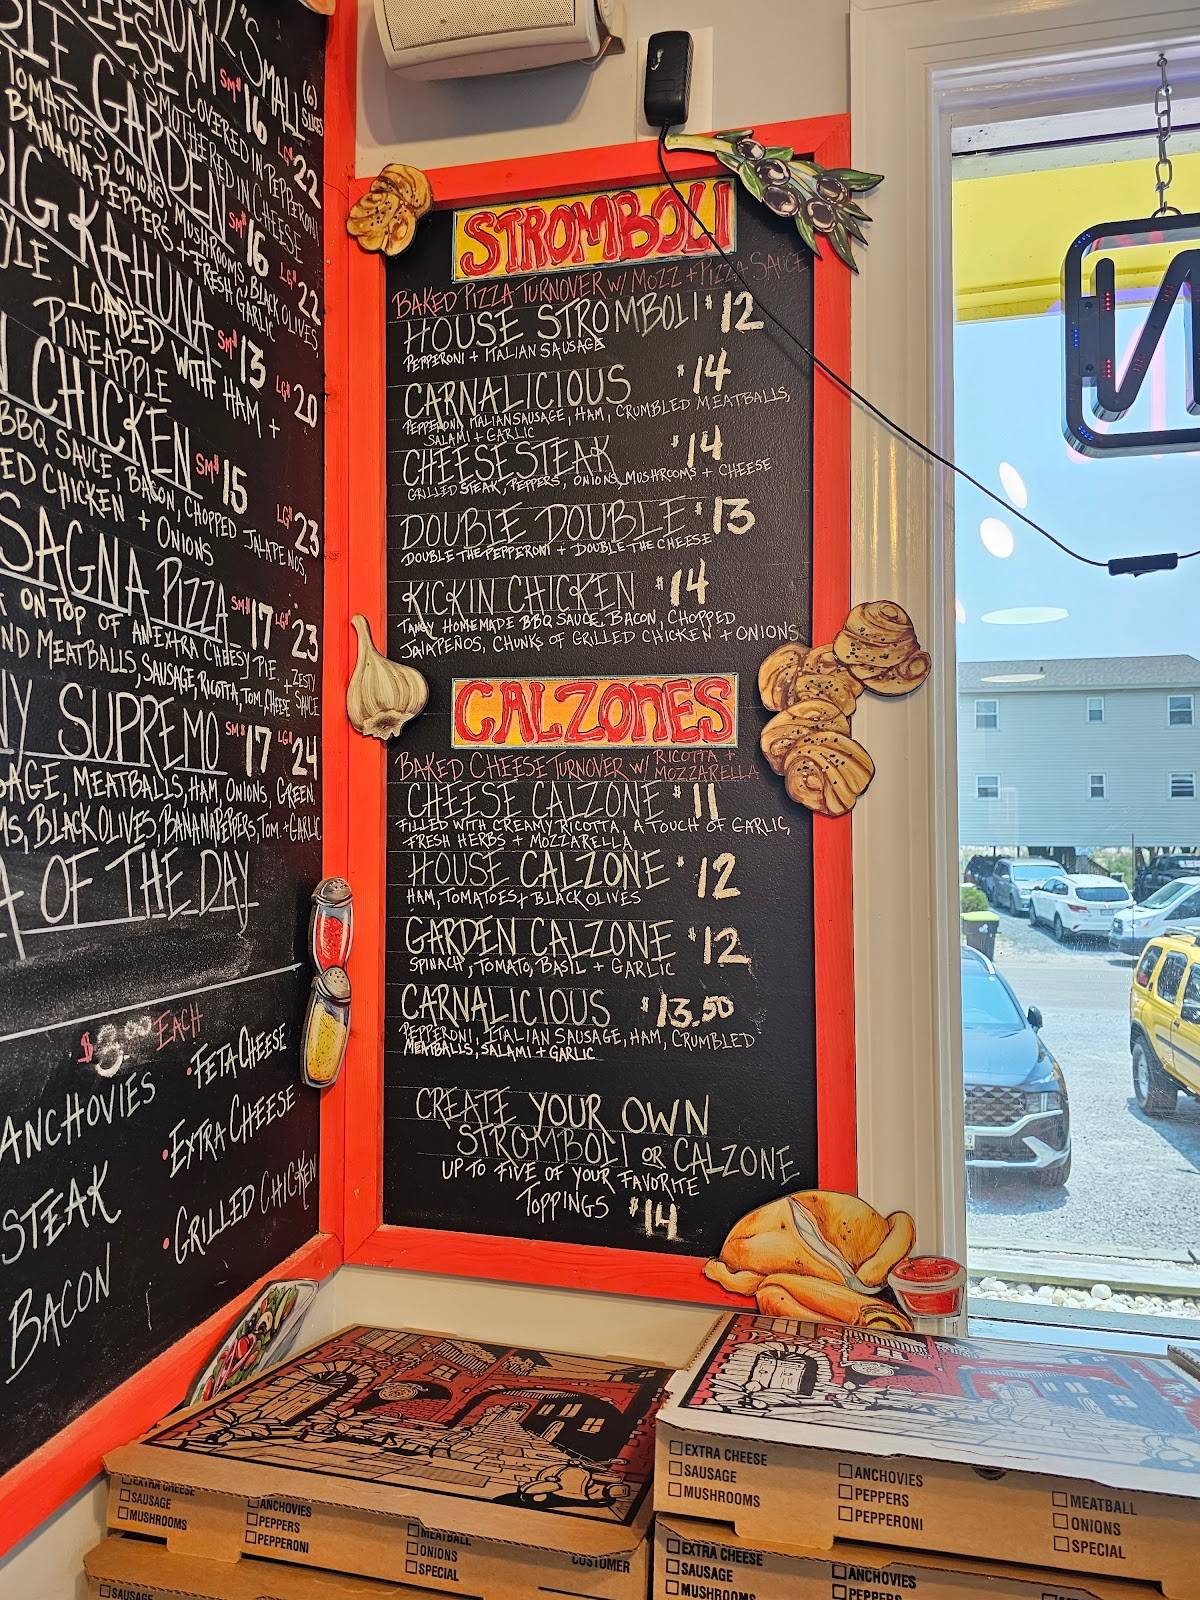 "SMALL (6) SLICES
COVERED IN PEPPERONI
SMOTHERED IN CHEESE
SM$ 16 LG$ 22
GARDEN
TOMATOES, ONIONS, MUSHROOMS, BLACK OLIVES,
BANANA PEPPERS + FRESH GARLIC
SM$ 16 LG$ 22
KAHUNA
LOADED WITH HAM +
PINEAPPLE
SM$ 13 LG$ 20
CHICKEN
BBQ SAUCE, BACON, CHOPPED JALAPENOS,
CHICKEN + ONIONS
SM$ 15 LG$ 23
PIZZA SM$ 17 LG$ 23
ON TOP OF AN EXTRA CHEESY PIE.
MEATBALLS, SAUSAGE, RICOTTA, TOM. CHEESE + ZESTY SAUCE
SUPREMO SM$ 17 LG$ 24
MEATBALLS, HAM, ONIONS, GREEN,
BLACK OLIVES, BANANA PEPPERS, TOM. + GARLIC
OF THE DAY
$3.00 EACH
ANCHOVIES
• FETA CHEESE
STEAK
• EXTRA CHEESE
BACON
• GRILLED CHICKEN
STROMBOLI
BAKED PIZZA TURNOVER W/ MOZZ + PIZZA SAUCE
HOUSE STROMBOLI $12
PEPPERONI + ITALIAN SAUSAGE
CARNALICIOUS $14
PEPPERONI, ITALIAN SAUSAGE, HAM, CRUMBLED MEATBALLS,
SALAMI + GARLIC
CHEESESTEAK $14
GRILLED STEAK, PEPPERS, ONIONS, MUSHROOMS + CHEESE
DOUBLE DOUBLE $13
DOUBLE THE PEPPERONI + DOUBLE THE CHEESE
KICKIN CHICKEN $14
TANGY HOMEMADE BBQ SAUCE, BACON, CHOPPED
JALAPEÑOS, CHUNKS OF GRILLED CHICKEN + ONIONS
CALZONES
BAKED CHEESE TURNOVER W/ RICOTTA + MOZZARELLA
CHEESE CALZONE $11
FILLED WITH CREAMY RICOTTA, A TOUCH OF GARLIC,
FRESH HERBS + MOZZARELLA
HOUSE CALZONE $12
HAM, TOMATOES + BLACK OLIVES
GARDEN CALZONE $12
SPINACH, TOMATO, BASIL + GARLIC
CARNALICIOUS $13.50
PEPPERONI, ITALIAN SAUSAGE, HAM, CRUMBLED
MEATBALLS, SALAMI + GARLIC
CREATE YOUR OWN
STROMBOLI OR CALZONE
UP TO FIVE OF YOUR FAVORITE
TOPPINGS $14
N
EXTRA CHEESE
SAUSAGE
MUSHROOMS
ANCHOVIES
PEPPERS
PEPPERONI
MEATBALL
ONIONS
SPECIAL
CUSTOMER
SAUSAGE
EXTRA CHEESE
SAUSAGE
MUSHROOMS
ANCHOVIES
PEPPERS
PEPPERONI
MEATBALL
ONIONS
SPECIAL
EXTRA CHEESE
SAUSAGE
MUSHROOMS
ANCHOVIES
PEPPERS